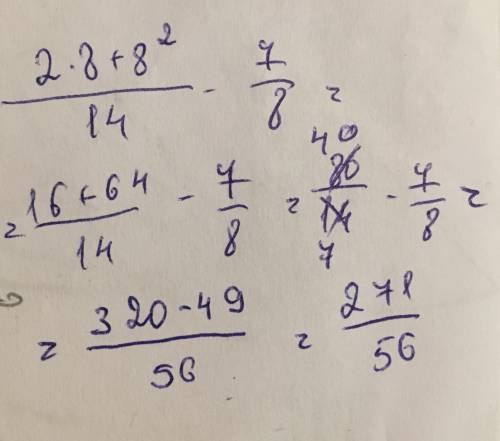 (2·8+8²)/14 - 7/8 =
= (16+64)/14 - 7/8 = 80/14 - 7/8 = 40 7
= (320-49)/56 = 271/56